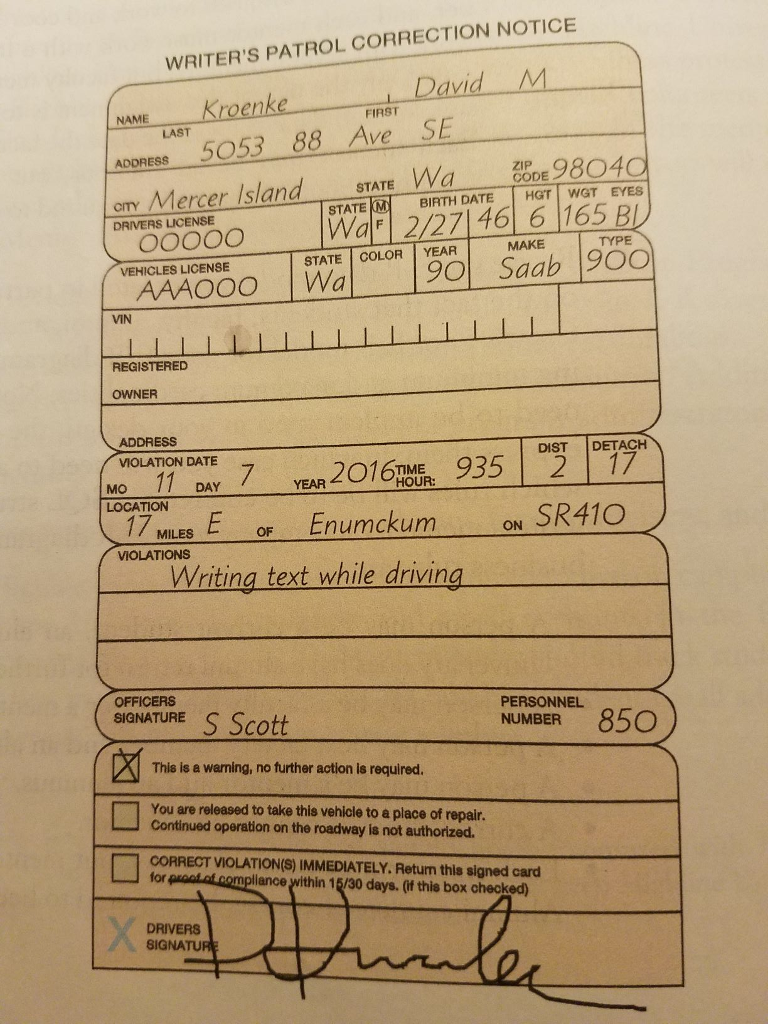 WRITER'S PATROL CORRECTION NOTICE
NAME Kroenke David M
LAST FIRST
ADDRESS 5053 88 Ave SE
CITY Mercer Island STATE Wa ZIP CODE 98040
DRIVERS LICENSE STATE M F BIRTH DATE HGT WGT EYES
00000 Wa 2/27 46 6 165 Bl
VEHICLES LICENSE STATE COLOR YEAR MAKE TYPE
AAA000 Wa 90 Saab 900
VIN
REGISTERED
OWNER
ADDRESS
VIOLATION DATE DIST DETACH
MO 11 DAY 7 YEAR 2016 TIME HOUR: 935 2 17
LOCATION
17 MILES E OF Enumckum ON SR410
VIOLATIONS
Writing text while driving
OFFICERS SIGNATURE S Scott PERSONNEL NUMBER 850
X This is a warning, no further action is required.
You are released to take this vehicle to a place of repair.
Continued operation on the roadway is not authorized.
CORRECT VIOLATION(S) IMMEDIATELY. Return this signed card
for proof of compliance within 15/30 days. (if this box checked)
X DRIVERS
SIGNATURE